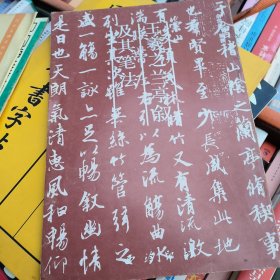 于會稽山陰之蘭亭脩稧
也羣賢畢至少長咸集此地
茂林脩竹又有清流激
王羲之兰亭叙
及其笔法
引以為流觴曲水
列坐其次雖無絲竹管弦之
盛一觴一詠亦足以暢敘幽情
是日也天朗氣清惠風和暢仰
書字